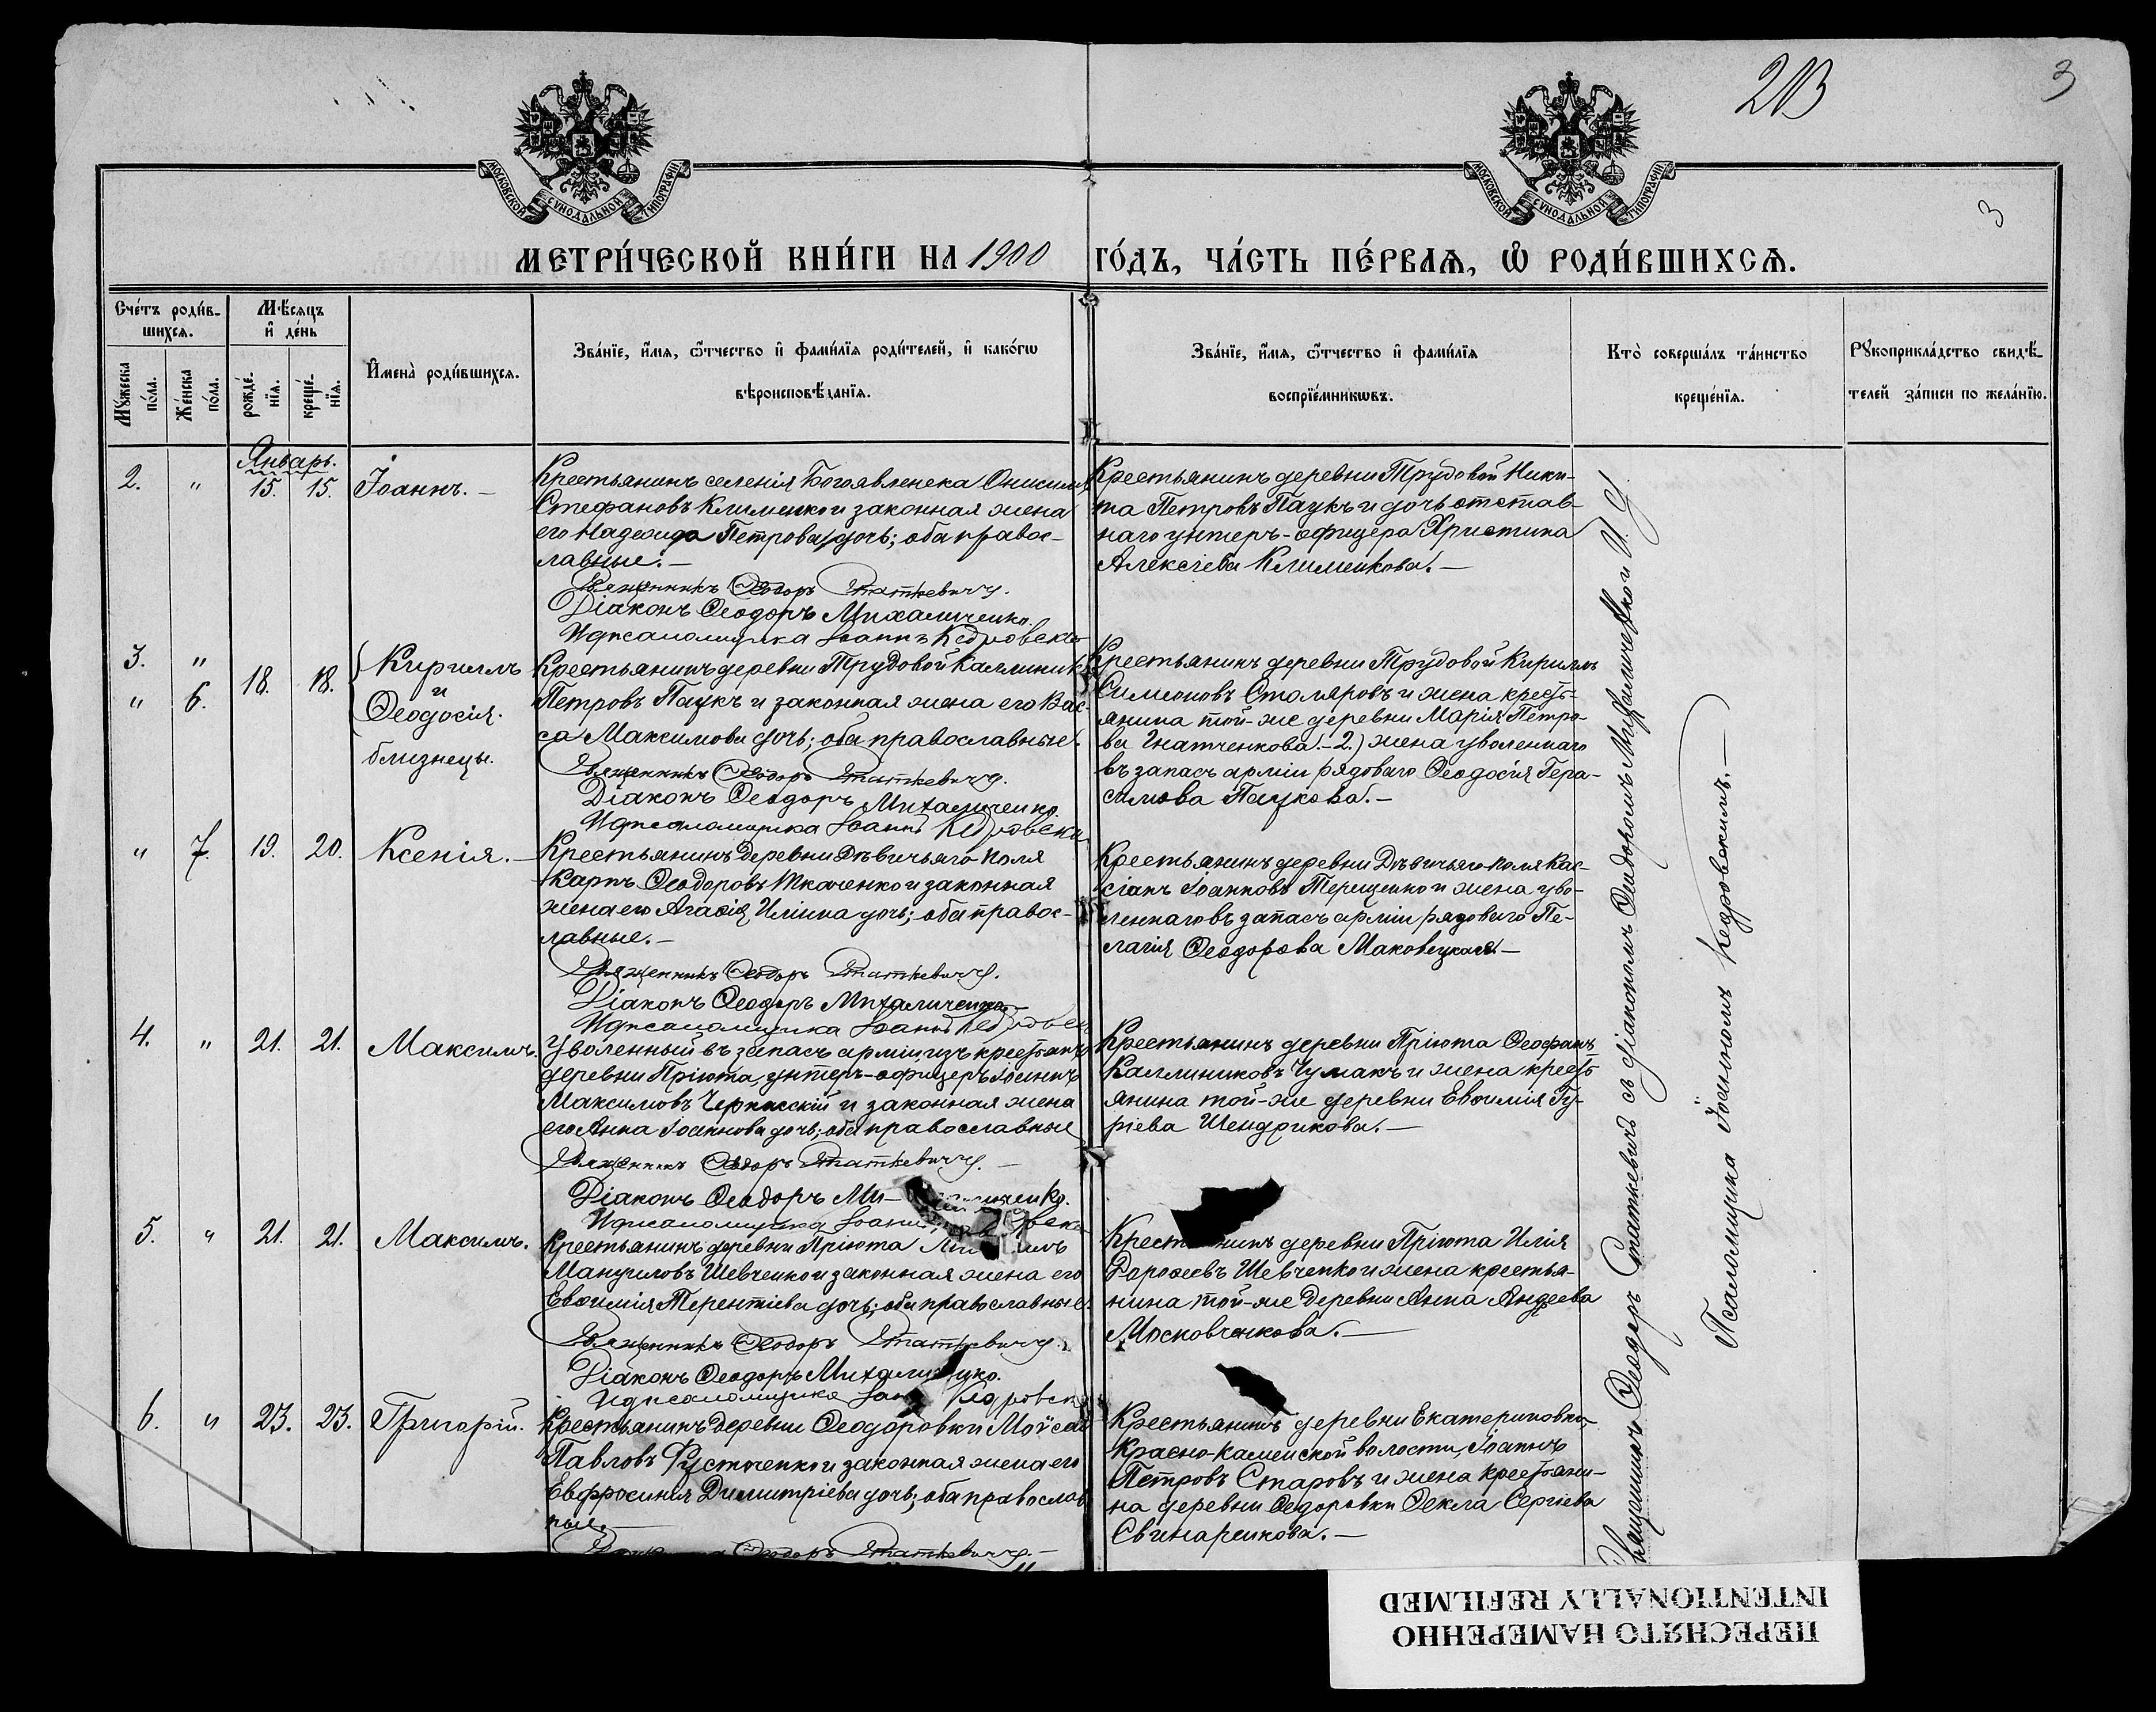 213
3
3
МОСКОВСКОЙ СѴНОДАЛЬНОЙ ТИПОГРАФІИ
МОСКОВСКОЙ СѴНОДАЛЬНОЙ ТИПОГРАФІИ
МЕТРИ́ЧЕСКОЙ КНИ́ГИ НА 1900 ГО́ДЪ, ЧА́СТЬ ПЕ́РВАѦ, Ѽ РОДИ́ВШИХСѦ.
Сче́тъ роди́в-
шихсѧ.
Мѣ́сѧцъ
и҆ де́нь
Мꙋ́жеска
по́ла.
Же́нска
по́ла.
рожде́-
нїѧ.
креще́-
нїѧ.
И҆мена̀ роди́вшихсѧ.
Зва́нїе, и҆́мѧ, ѻ҆́тчество и҆ фами́лїѧ роди́телей, и҆ како́гѡ
вѣроисповѣ́данїѧ.
Зва́нїе, и҆́мѧ, ѻ҆́тчество и҆ фами́лїѧ
воспрїе́мникѡвъ.
Кто̀ соверша́лъ та́инство
креще́нїѧ.
Рꙋкоприкла́дство свидѣ́-
телей за́писи по жела́нїю.
Январь.
2. " 15. 15. Іоаннъ. –
Крестьянинъ селенія Богоявленска Онисимъ
Стефановъ Клименко и законная жена
его Надежда Петрова дочь; оба правос-
лавные. –
Священникъ Ѳеодоръ Статкевичъ.
Діаконъ Ѳеодоръ Михаличенко.
И д псаломщика Іоаннъ Кедровскій
Крестьянинъ деревни Трудовой Ники-
та Петровъ Паукъ и дочь отстав-
наго унтеръ-офицера Христина
Алексіева Клименкова. –
3. "
" 6.
18. 18.
Кириллъ
и
Ѳеодосія.
близнецы.
Крестьянинъ деревни Трудовой Каллиникъ
Петровъ Паукъ и законная жена его Вас-
са Максимова дочь; оба православные.
Священникъ Ѳеодоръ Статкевичъ.
Діаконъ Ѳеодоръ Михаличенко.
И д псаломщика Іоаннъ Кедровскій
Крестьянинъ деревни Трудовой Кириллъ
Симеоновъ Столяровъ и жена кресть-
янина той-же деревни Марія Петро-
ва Игнатченкова. – 2.) жена уволеннаго
въ запасъ арміи рядоваго Ѳеодосія Гера-
симова Паукова. –
" 7. 19. 20. Ксенія. –
Крестьянинъ деревни Дѣвичьяго-поля
Карпъ Ѳеодоровъ Ткаченко и законная
жена его Агаѳія Иліина дочь; оба правос-
лавные. –
Священникъ Ѳеодоръ Статкевичъ.
Діаконъ Ѳеодоръ Михаличенко
И д псаломщика Іоаннъ Кедровскій
Крестьянинъ деревни Дѣвичьяго-поля Кас-
сіанъ Іоанновъ Терещенко и жена уво-
леннаго въ запасъ арміи рядоваго Пе-
лагія Ѳеодорова Маковецкая. –
4. " 21. 21. Максимъ.
Уволенный въ запасъ арміи изъ крестьянъ
деревни Пріюта, унтеръ-офицеръ Іоаннъ
Максимовъ Черкасскій и законная жена
его Анна Іоаннова дочь; оба православные
Священникъ Ѳеодоръ Статкевичъ. –
Діаконъ Ѳеодоръ Ми-
И д псаломщика Іоаннъ
Крестьянинъ деревни Пріюта Ѳеофанъ
Каллиниковъ Чумакъ и жена кресть
янина той-же деревни Евѳимія Гу-
ріева Шендрикова. –
5. " 21. 21. Максимъ.
Крестьянинъ деревни Пріюта
Мануиловъ Шевченко и законная жена его
Евѳимія Терентіева дочь; оба православные
Священникъ Ѳеодоръ Статкевичъ.
Діаконъ Ѳеодоръ Михаличенко.
И д псаломщика Іоаннъ Кедровскій
Крестьянинъ деревни Пріюта Илія
Дороѳеевъ Шевченко и жена крестья-
нина той-же деревни Анна Андреева
Московченкова. –
6. " 23. 23. Григорій.
Крестьянинъ деревни Ѳеодоровки Моѵсей
Павловъ Густоченко и законная жена его
Евфросинія Димитріева дочь; оба православ
ные. –
Священникъ Ѳеодоръ Статкевичъ. –
Крестьянинъ деревни Екатериновки
Красно-каменской волости, Іоаннъ
Петровъ Старовъ и жена крестьяни-
на деревни Ѳедоровки Ѳекла Сергіева
Свинаренкова. –
Священникъ Ѳеодоръ Статкевичъ съ діакономъ Ѳеодоромъ Михаличенко и И. Д.
Псаломщика Іоанномъ Кедровскимъ. –
ПЕРЕСНЯТО НАМЕРЕННО
INTENTIONALLY REFILMED